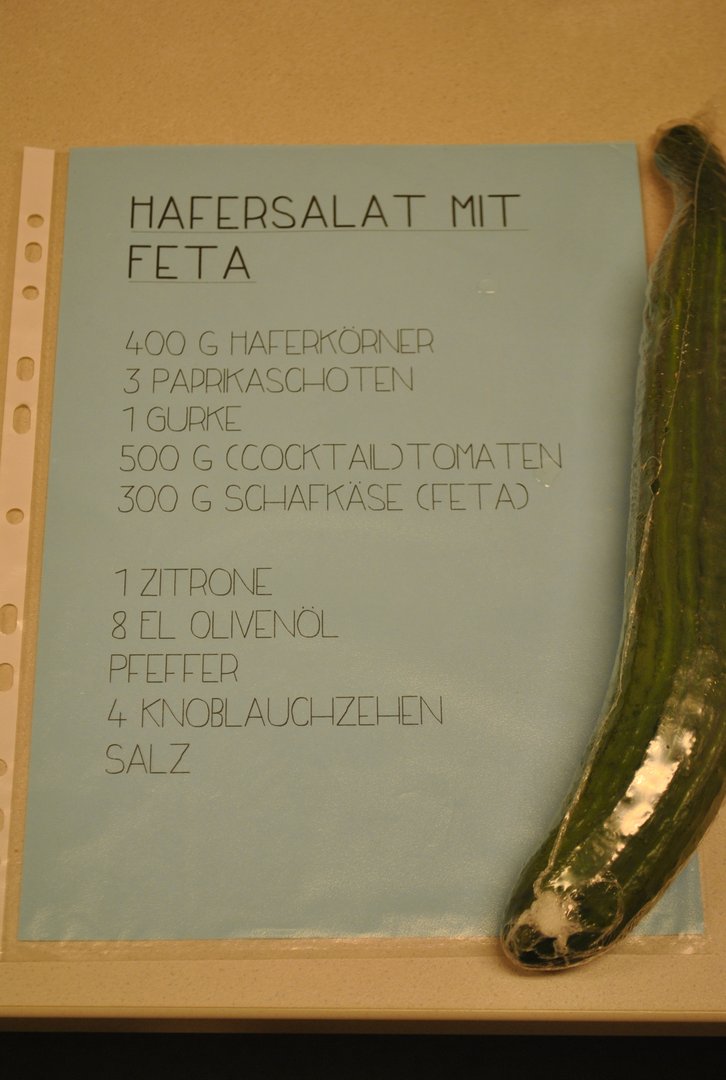 HAFERSALAT MIT
FETA
400 G HAFERKÖRNER
3 PAPRIKASCHOTEN
1 GURKE
500 G (COCKTAIL)TOMATEN
300 G SCHAFKÄSE (FETA)
1 ZITRONE
8 EL OLIVENÖL
PFEFFER
4 KNOBLAUCHZEHEN
SALZ